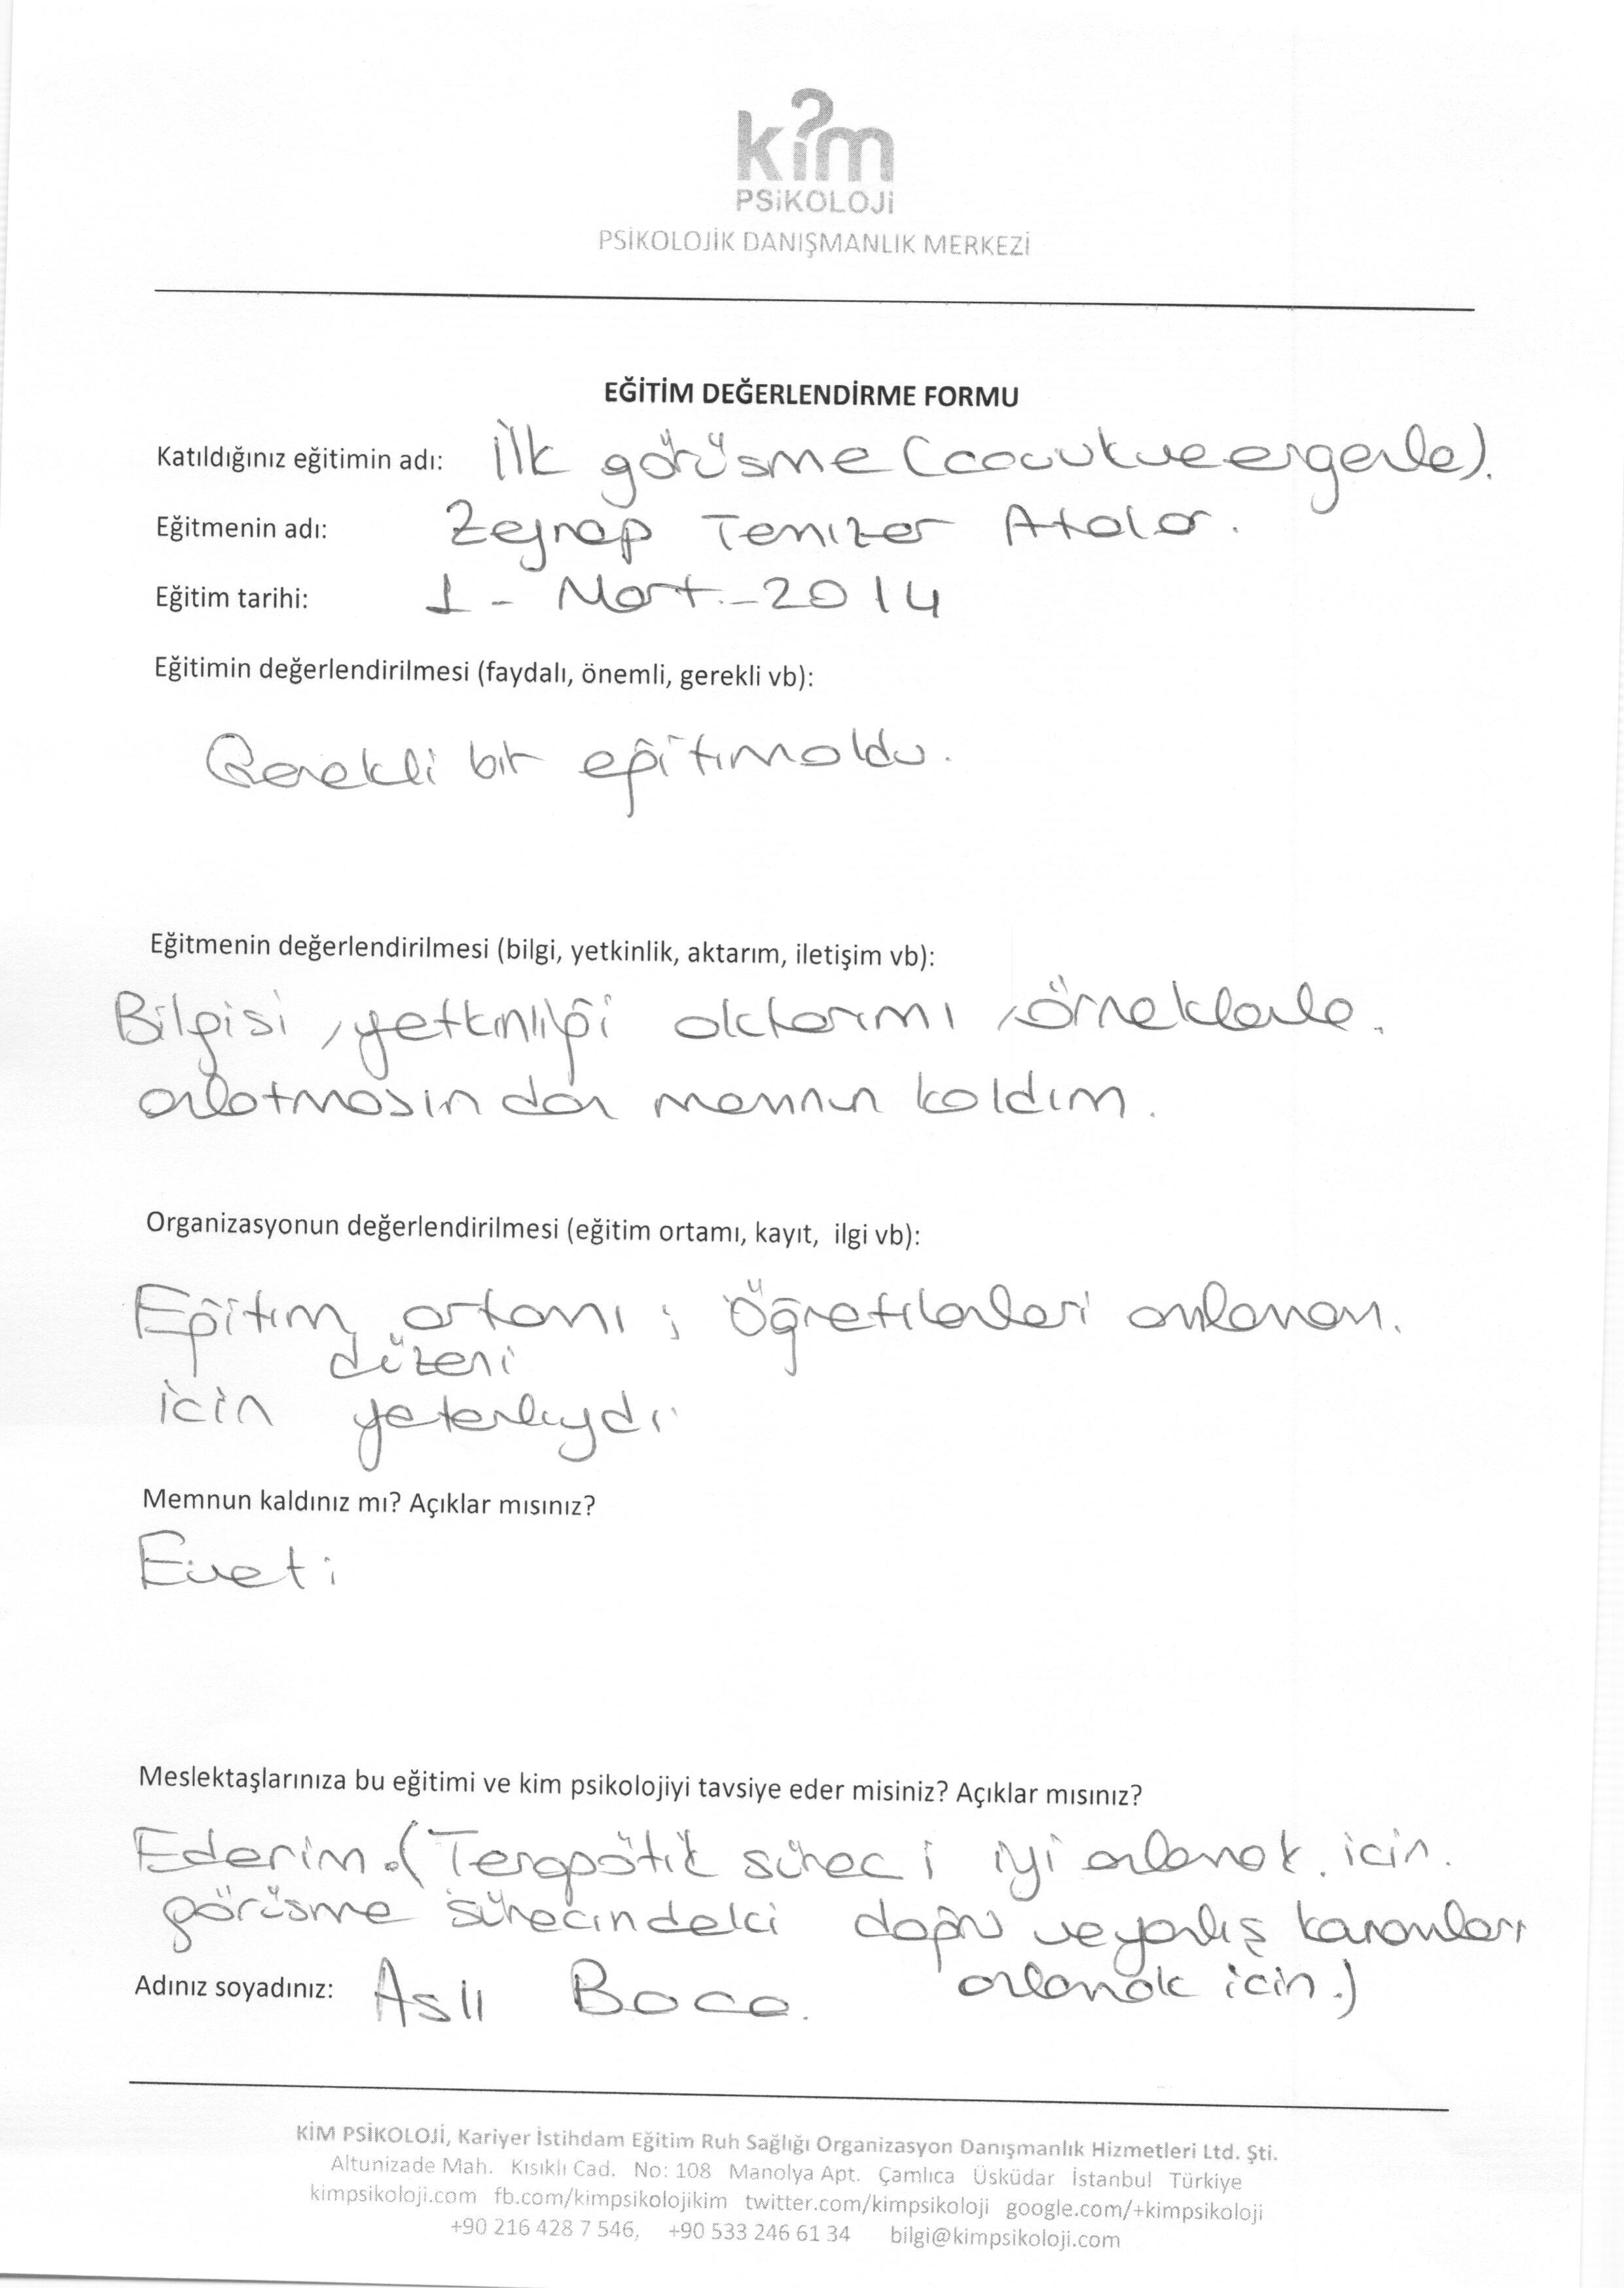 kim
PSİKOLOJİ
PSİKOLOJİK DANIŞMANLIK MERKEZİ
EĞİTİM DEĞERLENDİRME FORMU
Katıldığınız eğitimin adı: İlk görüsme (cocuk ve ergenle).
Eğitmenin adı: Zeynep Temizer Atalar.
Eğitim tarihi: 1 - Mart - 2014
Eğitimin değerlendirilmesi (faydalı, önemli, gerekli vb):
Gerekli bir eğitim oldu.
Eğitmenin değerlendirilmesi (bilgi, yetkinlik, aktarım, iletişim vb):
Bilgisi, yetkinliği aktarımı, örneklerle.
anlatmasından memnun kaldım.
Organizasyonun değerlendirilmesi (eğitim ortamı, kayıt, ilgi vb):
Eğitim ortamı; Öğretilenleri anlamam.
düzeni
icin yeterliydi
Memnun kaldınız mı? Açıklar mısınız?
Evet;
Meslektaşlarınıza bu eğitimi ve kim psikolojiyi tavsiye eder misiniz? Açıklar mısınız?
Ederim. (Terapötik süreci iyi anlamak. icin.
görüsme sürecindeki doğru ve yanlış kavramları
anlamak icin.)
Adınız soyadınız: Aslı Boca.
KİM PSİKOLOJİ, Kariyer İstihdam Eğitim Ruh Sağlığı Organizasyon Danışmanlık Hizmetleri Ltd. Şti.
Altunizade Mah. Kısıklı Cad. No: 108 Manolya Apt. Çamlıca Üsküdar İstanbul Türkiye
kimpsikoloji.com fb.com/kimpsikolojikim twitter.com/kimpsikoloji google.com/+kimpsikoloji
+90 216 428 7 546, +90 533 246 61 34 bilgi@kimpsikoloji.com